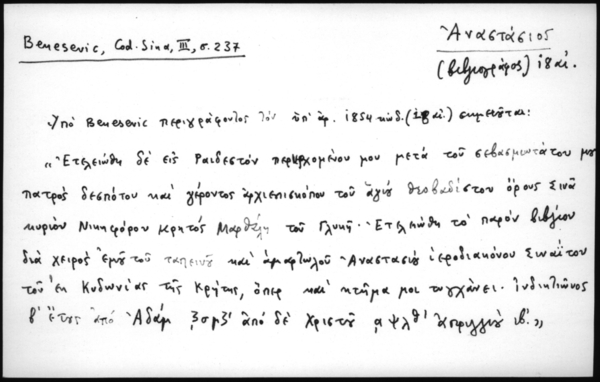 Benesevic, Cod. Sina, III, σ. 237
Ἀναστάσιος
(βιβλιογράφος) ιη αἰ.
Ὑπὸ Benesevic περιγράφοντος τὸν ὑπ' ἀρ. 1854 κώδ. (ιη αἰ.) σημειοῦται:
«Ἐτελειώθη δὲ εἰς Ραιδεστὸν περιερχομένου μου μετὰ τοῦ σεβασμιωτάτου μου
πατρὸς δεσπότου καὶ γέροντος ἀρχιεπισκόπου τοῦ ἁγίου θεοβαδίστου ὄρους Σινᾶ
κυρίου Νικηφόρου κρητός Μαρθάλη τοῦ Γλυκῆ. Ἐτελειώθη τὸ παρὸν βιβλίον
διὰ χειρὸς ἐμοῦ τοῦ ταπεινοῦ καὶ ἁμαρτωλοῦ Ἀναστασίου ἱεροδιακόνου Σιναΐτου
τοῦ ἐκ Κυδωνίας τῆς Κρήτης, ὅπερ καὶ κτῆμά μοι τυγχάνει. Ἰνδικτιῶνος
β' ἔτους ἀπὸ Ἀδὰμ ͵ζσμζ' ἀπὸ δὲ Χριστοῦ ͵αψλθ' ἀπριλλίου ιβ'.»